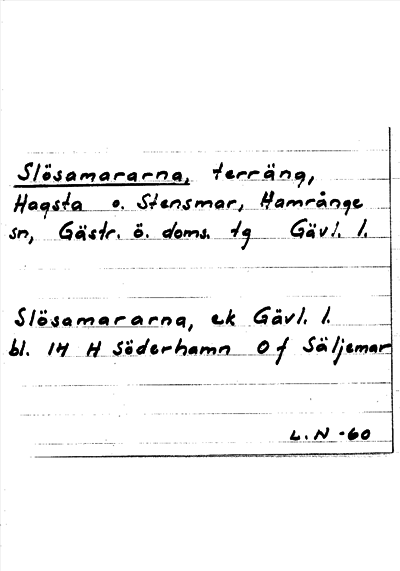 Slösamararna, terräng,
Hagsta o. Stensmar, Hamrånge
sn, Gästr. ö. doms. tg Gävl. l.
Slösamararna, ek Gävl. l.
bl. 14 H Söderhamn O f Säljemar
L.N -60